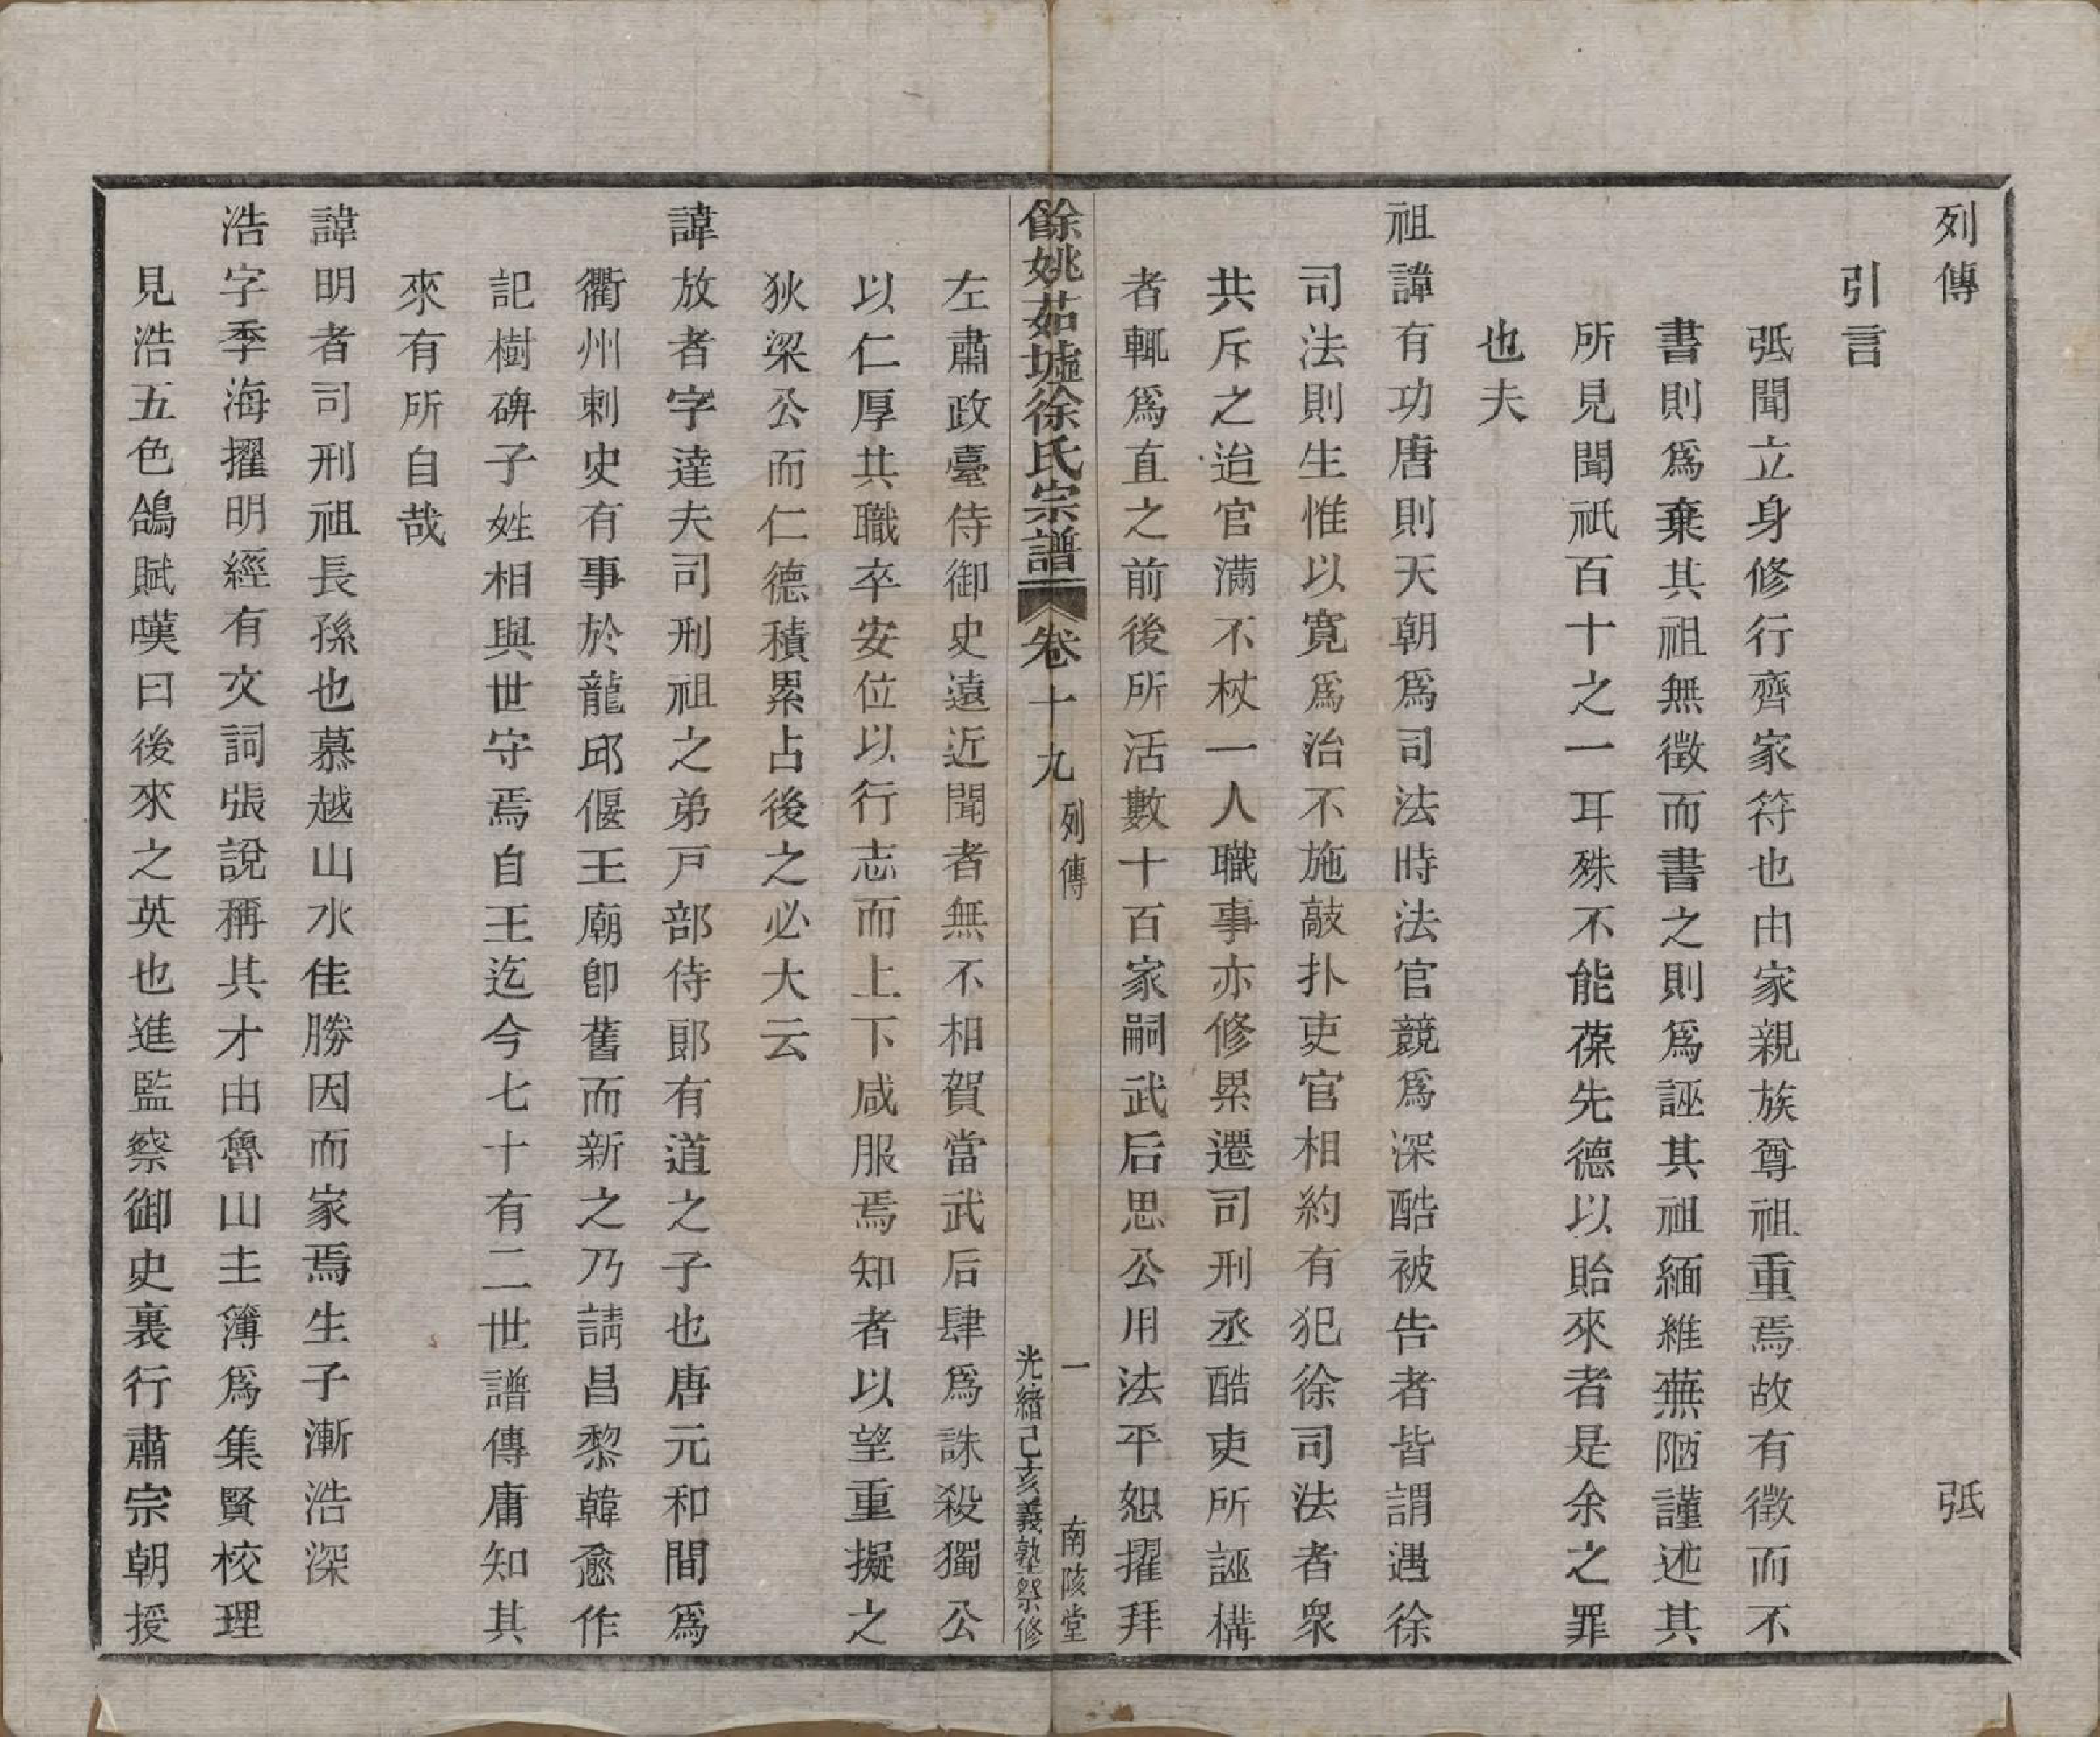 列傳 弤
引言
弤聞立身修行齊家符也由家親族尊祖重焉故有徵而不
書則爲棄其祖無徵而書之則爲誣其祖緬維蕪陋謹述其
所見聞祇百十之一耳殊不能葆先德以貽來者是余之罪
也夫
祖諱有功唐則天朝爲司法時法官競爲深酷被告者皆謂遇徐
司法則生惟以寬爲治不施敲扑吏官相約有犯徐司法者衆
共斥之迨官滿不杖一人職事亦修累遷司刑丞酷吏所誣構
者輒爲直之前後所活數十百家嗣武后思公用法平恕擢拜
餘姚茹墟徐氏宗譜 卷十九 列傳 一 南陔堂 光緒己亥義塾祭修
左肅政臺侍御史遠近聞者無不相賀當武后肆爲誅殺獨公
以仁厚共職卒安位以行志而上下咸服焉知者以望重擬之
狄梁公而仁德積累占後之必大云
諱放者字達夫司刑祖之弟戸部侍郞有道之子也唐元和間爲
衢州刺史有事於龍邱偃王廟卽舊而新之乃請昌黎韓愈作
記樹碑子姓相與世守焉自王迄今七十有二世譜傳庸知其
來有所自哉
諱明者司刑祖長孫也慕越山水佳勝因而家焉生子漸浩深
浩字季海擢明經有文詞張說稱其才由魯山主簿爲集賢校理
見浩五色鴿賦嘆曰後來之英也進監察御史裏行肅宗朝授